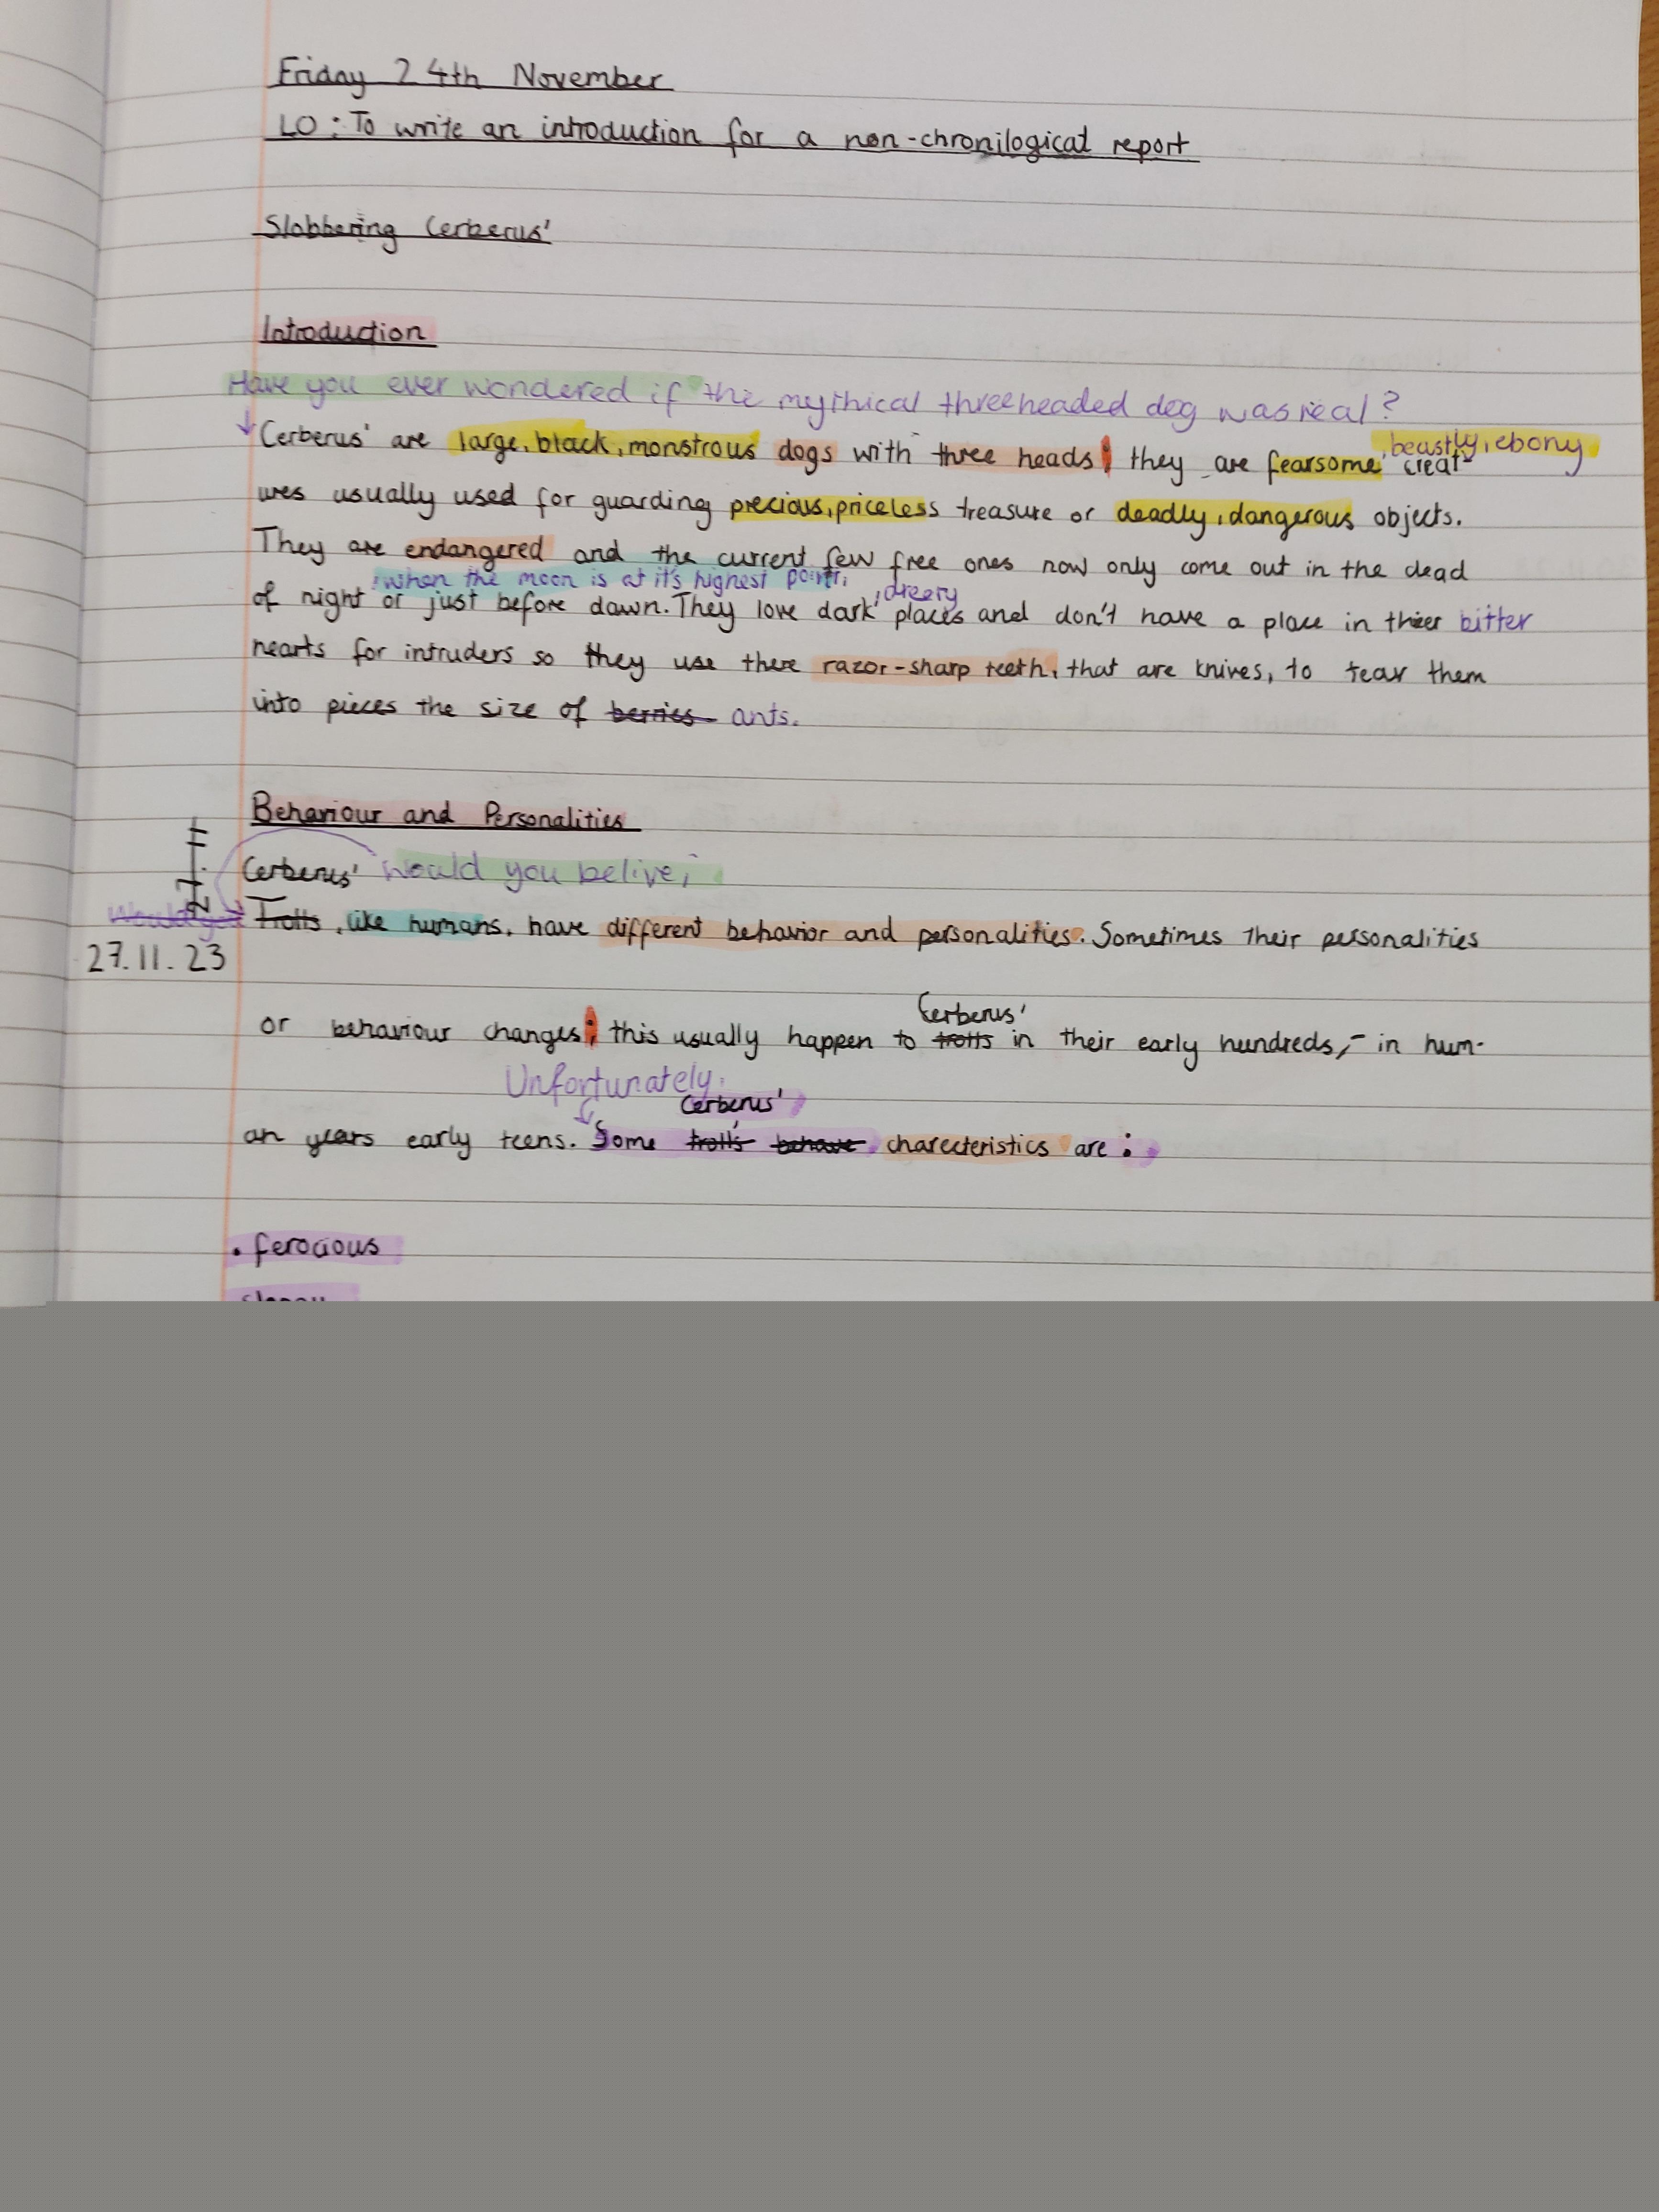 Friday 24th November
LO: To write an introduction for a non-chronilogical report
Slobbering Cerberus'
Introduction
Have you ever wondered if the mythical threeheaded dog was real?
Cerberus' are large, black, monstrous dogs with three heads; they are fearsome, beastly, ebony creat-
ures usually used for guarding precious, priceless treasure or deadly, dangerous objects.
They are endangered and the current few free ones now only come out in the dead
of night, when the moon is at it's highest point, or just before dawn. They love dark, dreery places and don't have a place in thier bitter
hearts for intruders so they use there razor-sharp teeth, that are knives, to tear them
into pieces the size of berries ants.
Behaviour and Personalities
Cerberus' would you belive,
Would you Trolls, like humans, have different behavior and personalities. Sometimes their personalities
27.11.23
or behaviour changes; this usually happen to trolls Cerberus' in their early hundreds, - in hum-
Unfortunately,
an years early teens. Some troll's Cerberus' behave characteristics are:
• ferocious